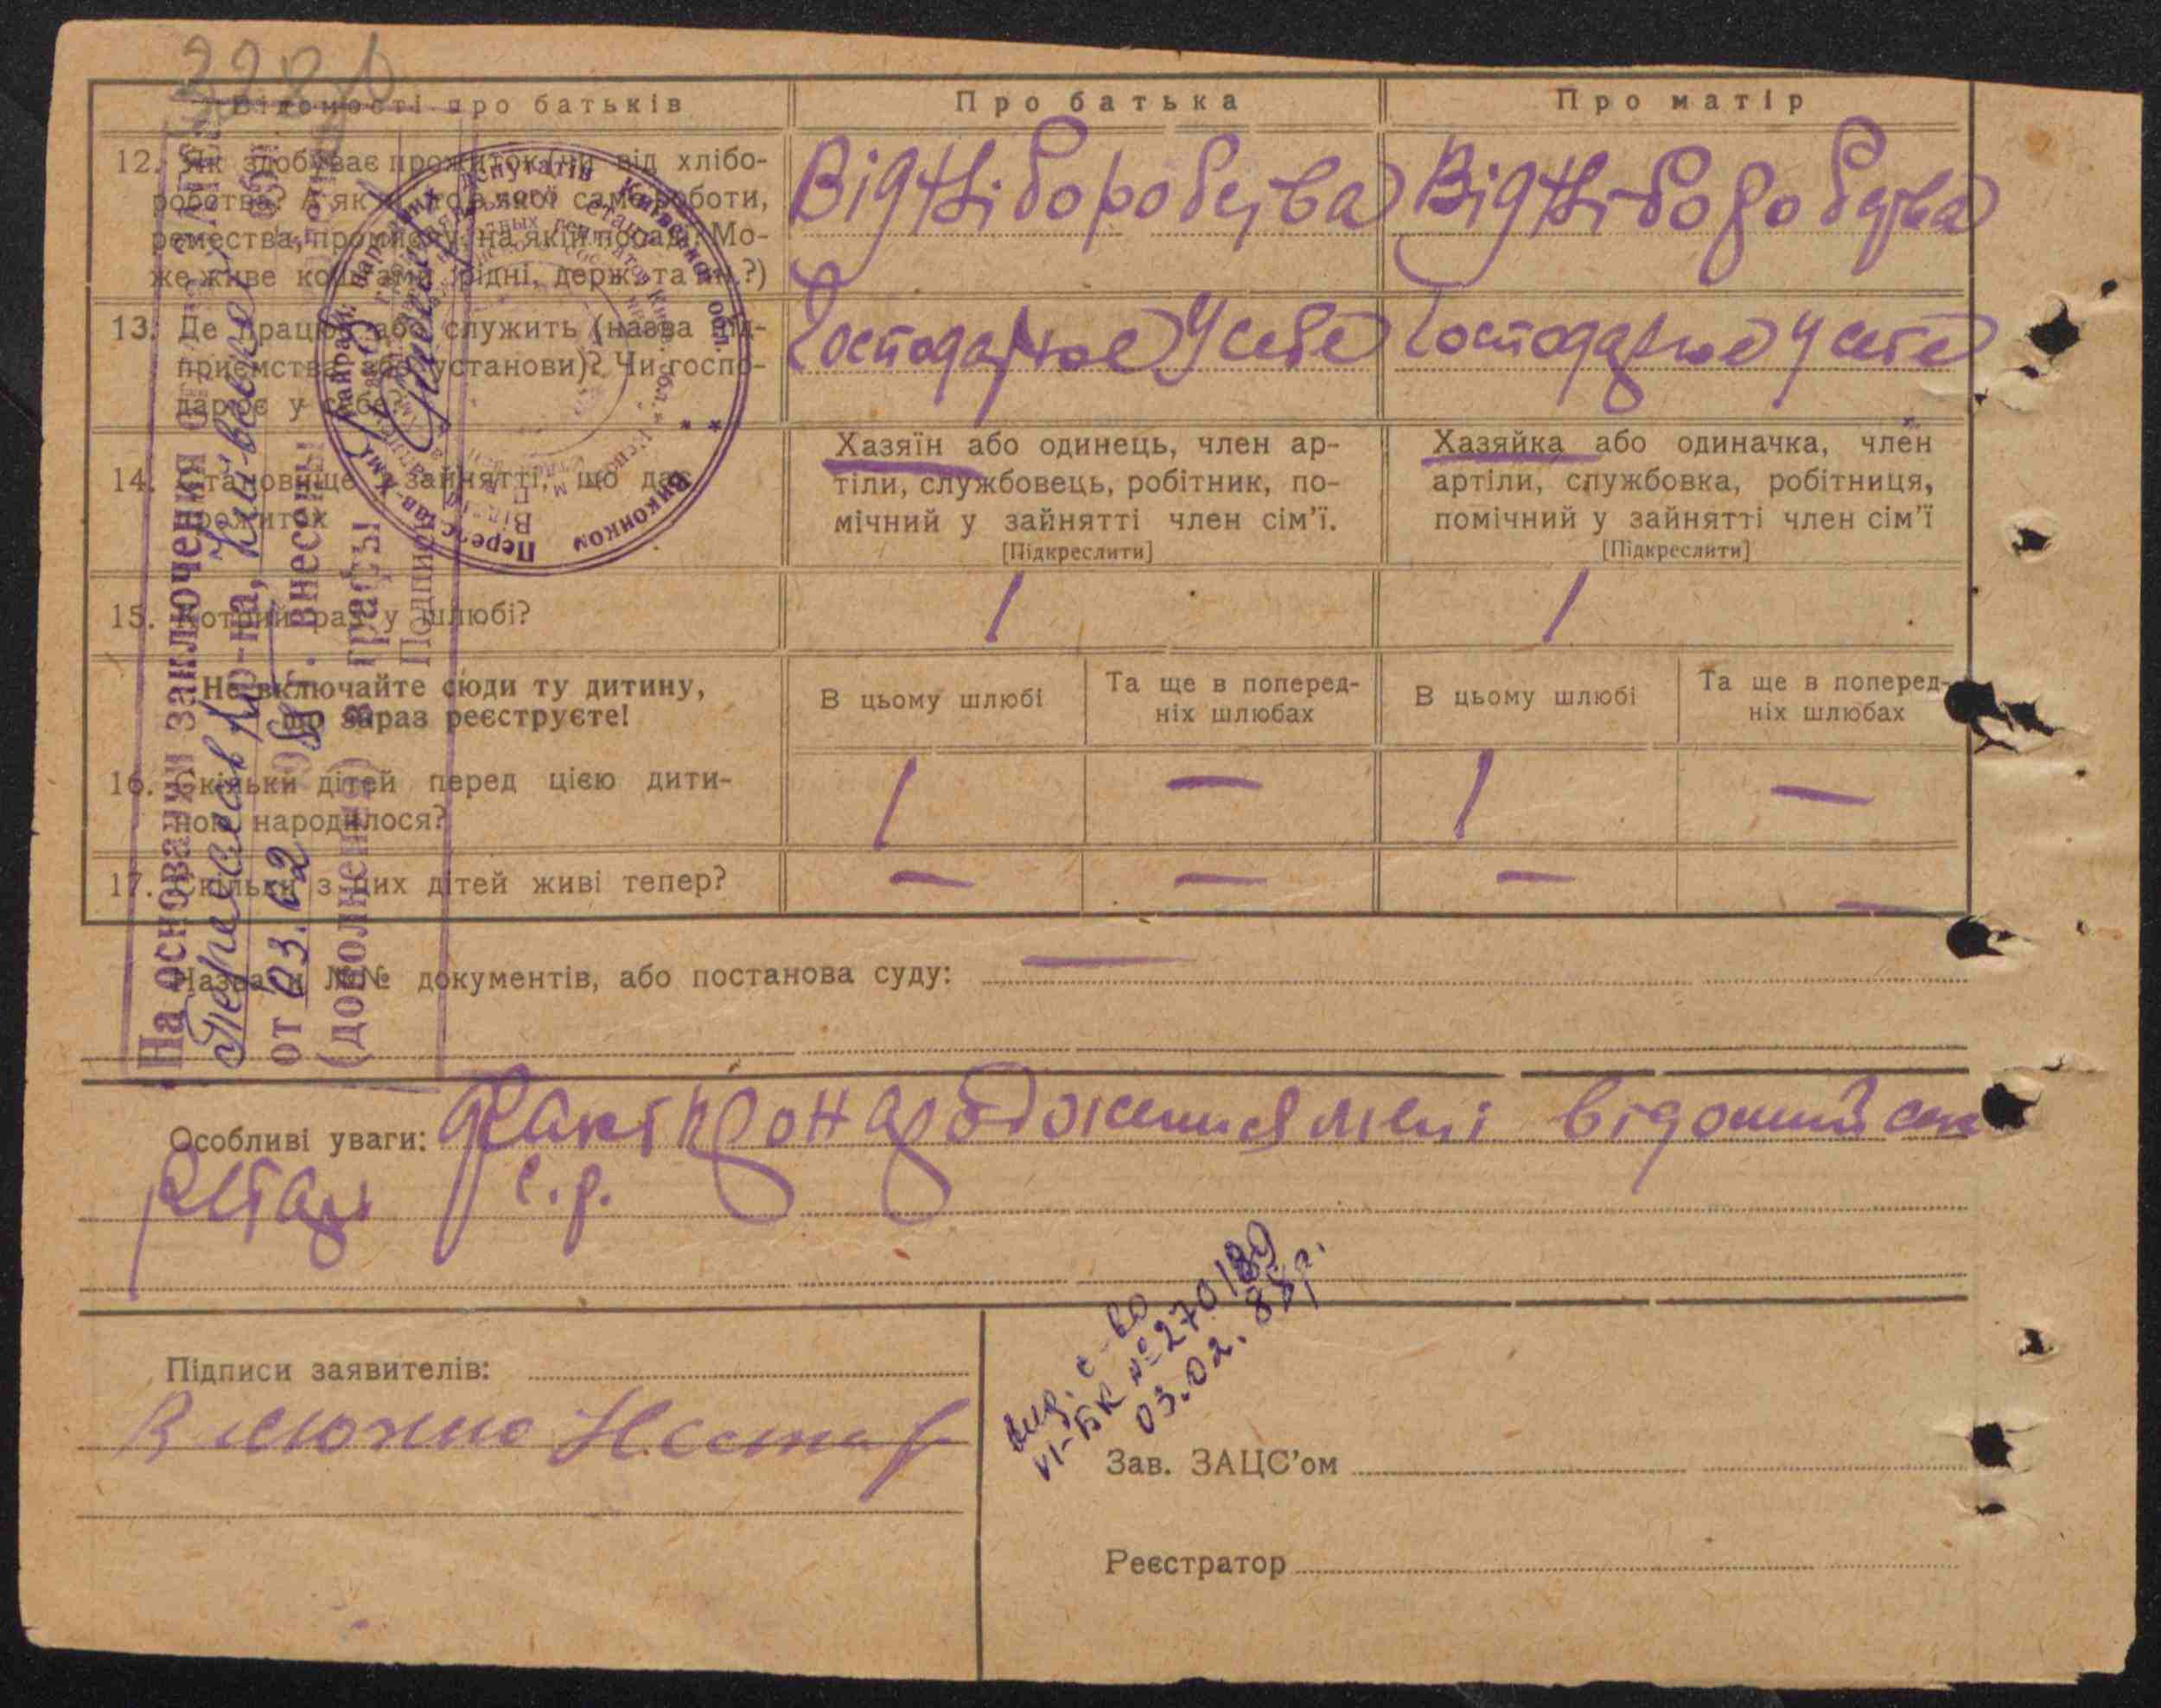 Відомості про батьків
Про батька
Про матір
12. Як здобуває прожиток (чи від хлібо-
робства? А як ні, то з якої саме роботи,
ремества, промислу, на якій посаді? Мо-
же живе коштами рідні, держ. та ін.?)
Від Хліборобства
Від Хліборобства
13. Де працює або служить (назва під-
приємства або установи)? Чи госпо-
дарює у себе?
Господарює у себе
Господарює у себе
14. Становище в зайнятті, що дає
прожиток
Хазяїн або одинець, член ар-
тіли, службовець, робітник, по-
мічний у зайнятті член сім’ї.
[Підкреслити]
Хазяйка або одиначка, член
артіли, службовка, робітниця,
помічний у зайнятті член сім’ї
[Підкреслити]
15. Котрий раз у шлюбі?
1
1
Не включайте сюди ту дитину,
що зараз реєструєте!
В цьому шлюбі
Та ще в поперед-
ніх шлюбах
В цьому шлюбі
Та ще в поперед-
ніх шлюбах
16. Скільки дітей перед цією дити-
ною народилося?
1 — 1 —
17. Скільки з цих дітей живі тепер?
— — — —
Назва й №№ документів, або постанова суду: —
Особливі уваги: Факт про народження мені відомий сек
ретар с.р.
Підписи заявителів:
Зав. ЗАЦС’ом
Реєстратор
вид. с-во
VI-БК № 270189
03.02. 88р.
На основании заключения
Переяслав р-на, Киевской обл.
от 03.02 г. внесены
(дополнения) в графы
Подпись
депутатів Київської обл. * Виконком Переяслав-Хм